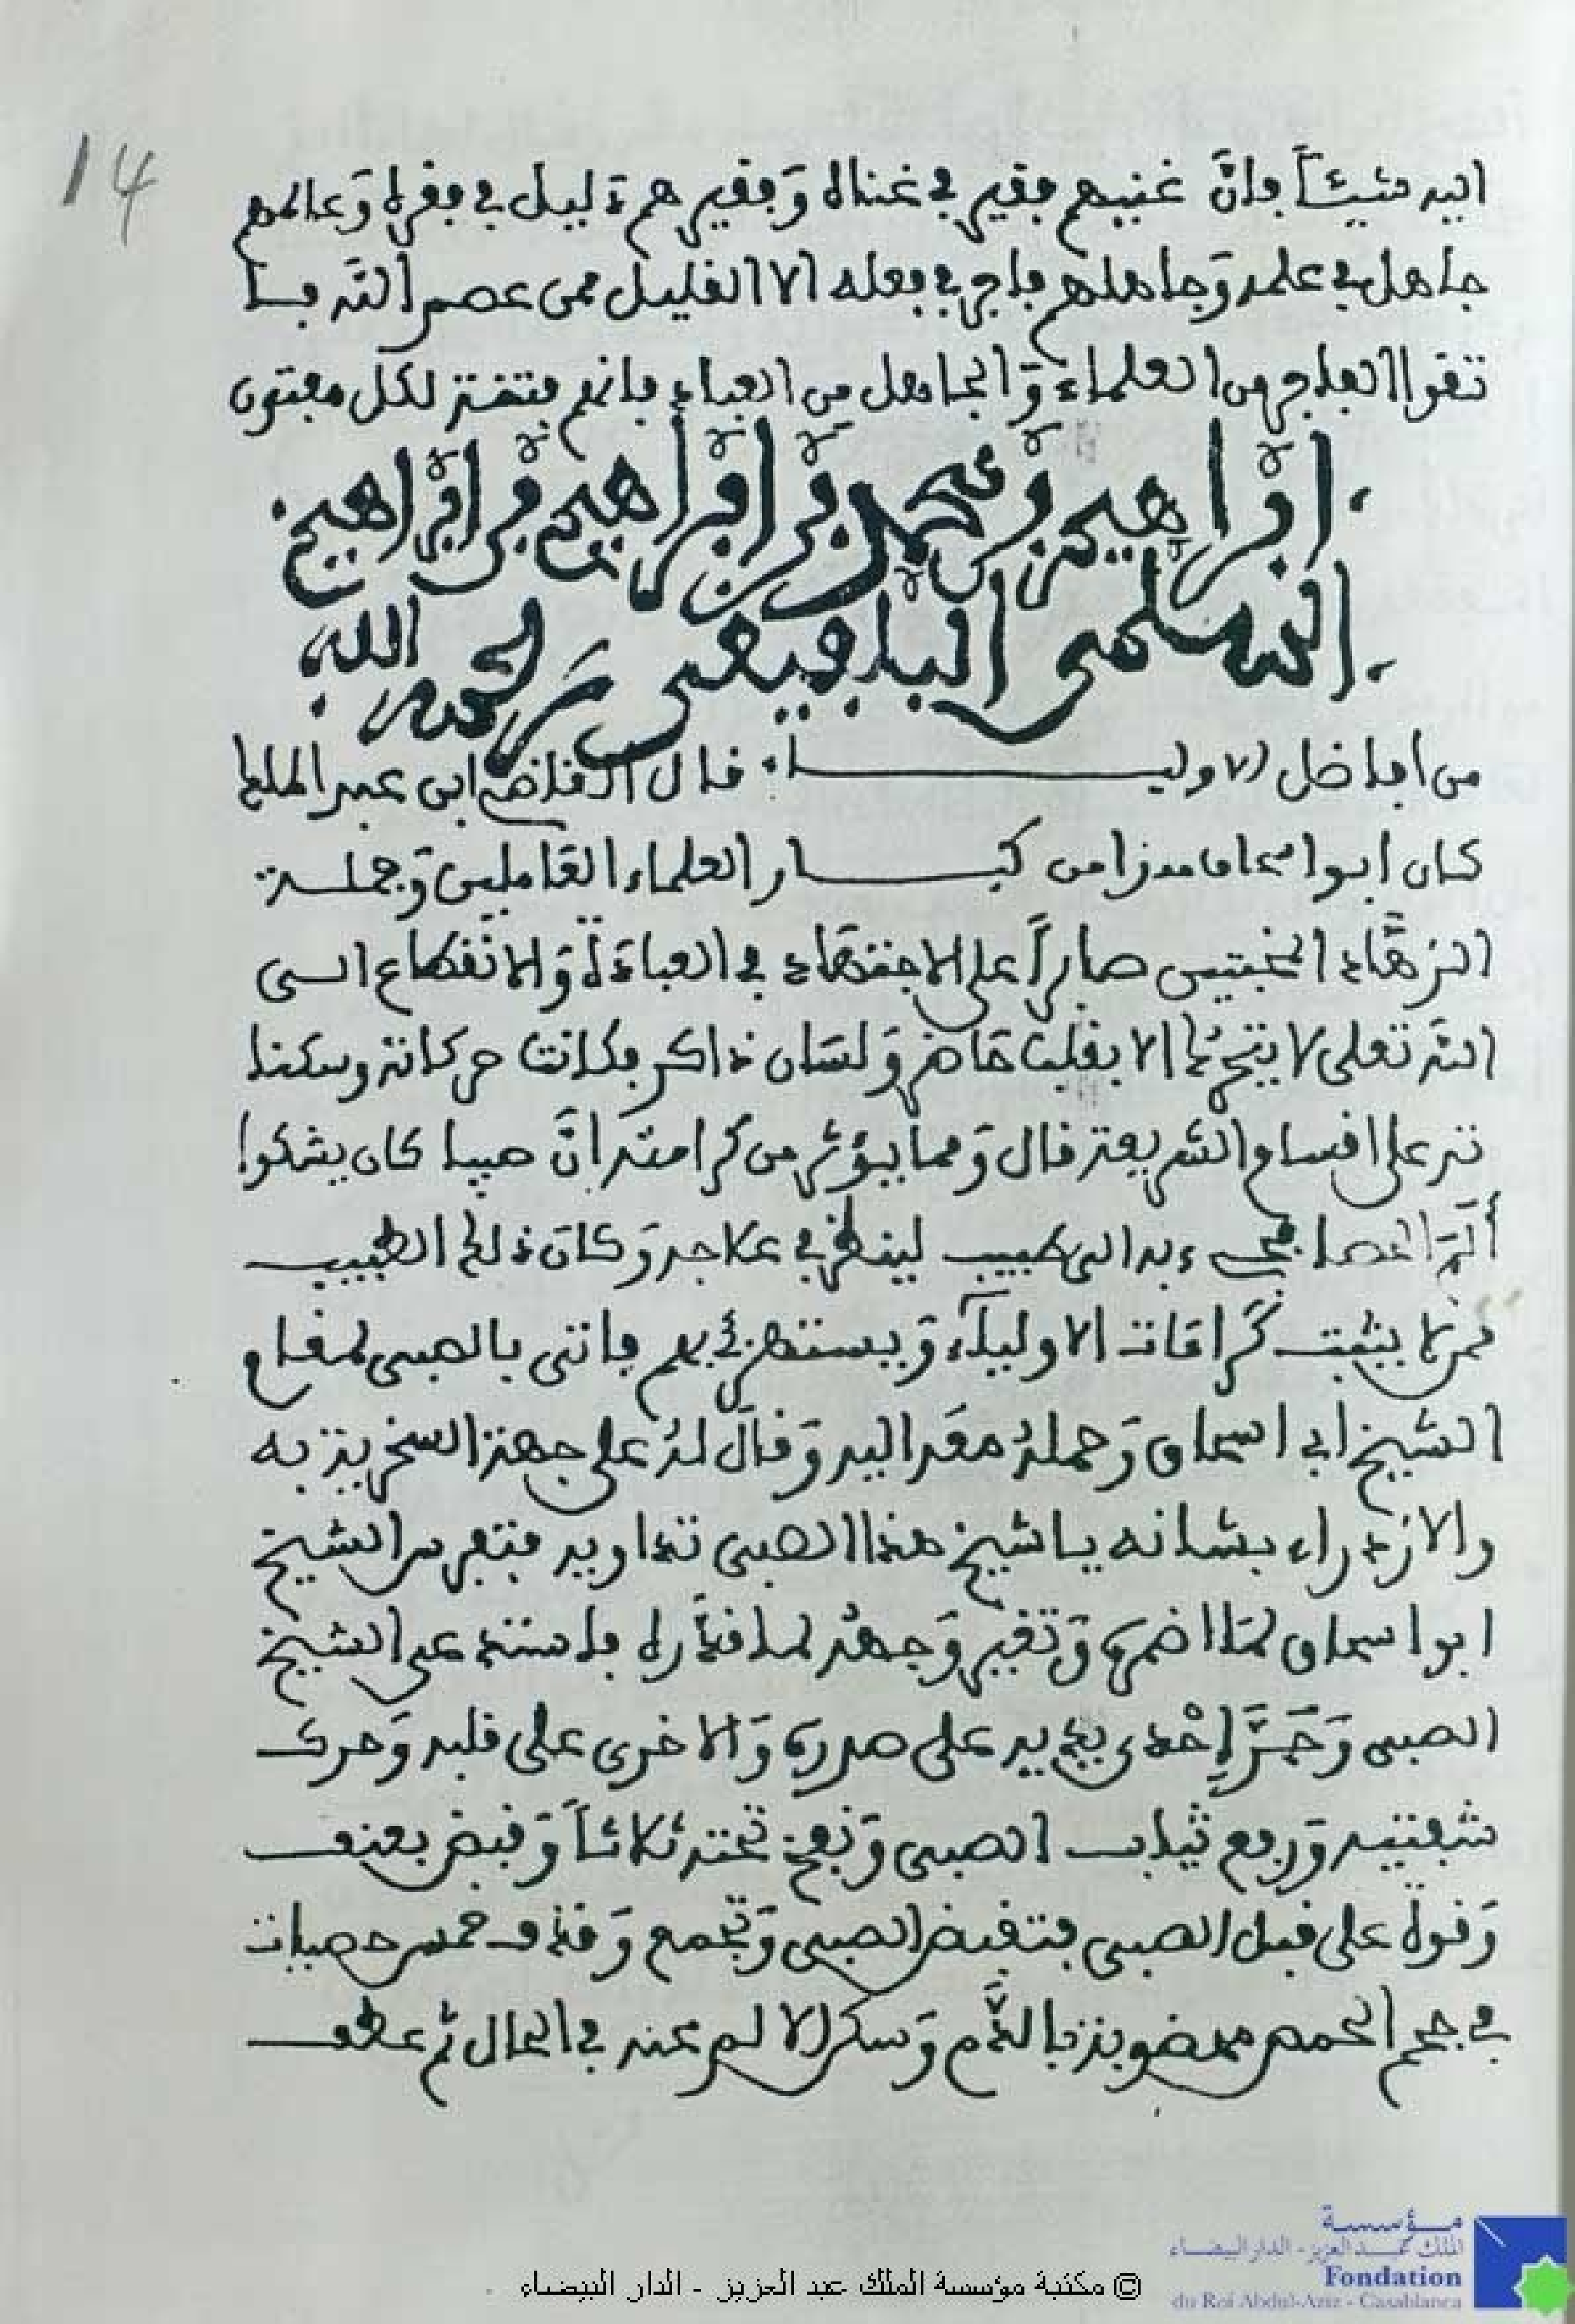 14
اليه شيئاً فإنَّ غنيهم فقير في غناه وَفقيرهم ذليل في فقره وَعالمهم
جاهل في علمه وَجاهلهم فاجر في فعله الا القليل ممن عصم اللّه فا
تقوا الفاجر من العلماء وَالجاهل من العباد فإنهم فتنة لكل مفتون
إبراهيم بن محمد بن إبراهيم بن إبراهيم
السلمي البلفيقي رحمه الله
من أفاضل الاوليـــاء قال القاضي ابن عبد الملك
كان ابو اسحاق هذا من كبـــار العلماء العَاملين وَجملة
الزهَّاد المخبتين صابراً على الاجتهَاد في العبادَة وَالانقطاع الى
اللّه تعلى لا يتحرك الا بقلب حَاضر وَلسَان ذاكر فكانت حركاته وسكنا
ته على اقسام الشريعة قال وَمما يؤثر من كرامته انَّ صبيا كان يشكوا
ألمَ الحصا فجيء به الى طبيب لينظر في علاجه وَكان ذلك الطبيب
ممن لا يثبت كرَامَات الاولياء وَيستهزئ بهم فاتى بالصبي لمقام
الشيخ ابي اسحاق وَحمله معَه اليه وَقالَ لهُ على جهة السخرية به
والازدراء بشانه يا شيخ هذا الصبي تداويه فتفرس الشيخ
ابو اسحاق لمَا اضمره وَتغير وَجههُ لما قدَّره فاستدعى الشيخ
الصبي وَجَرَّ إحْدى يديه على صدره وَالاخرى على قلبه وَحرك
شفتيه وَرفع ثياب الصبي وَنفخ تحته ثلاثاً وَقبض بعنف
وَقوة على قبل الصبي فتقبض الصبي وَتجمع وَقذف خمس حصيات
في حجم الحمص مخضوبة بالدَّم وَسكن الالم عنه في الحال ثم عطف
© مكتبة مؤسسة الملك عبد العزيز - الدار البيضاء
مؤسسة
الملك عبد العزيز - الدار البيضاء
Fondation
du Roi Abdul-Aziz - Casablanca